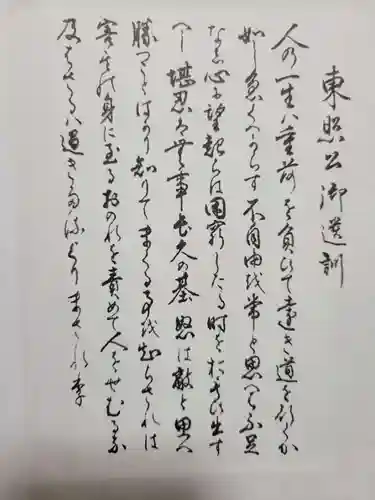 東照公御遺訓
人の一生ハ重荷を負ひて遠き道を行くか
如し急くへからす不自由を常と思へハ不足
なし心に望起らは困窮したる時を於もひ出す
へし堪忍は無事長久の基怒は敵と思へ
勝つことはかり知りてまくる事を知らされは
害其の身に至るおのれを責めて人をせむるな
及はさるハ過きたるよりまされり